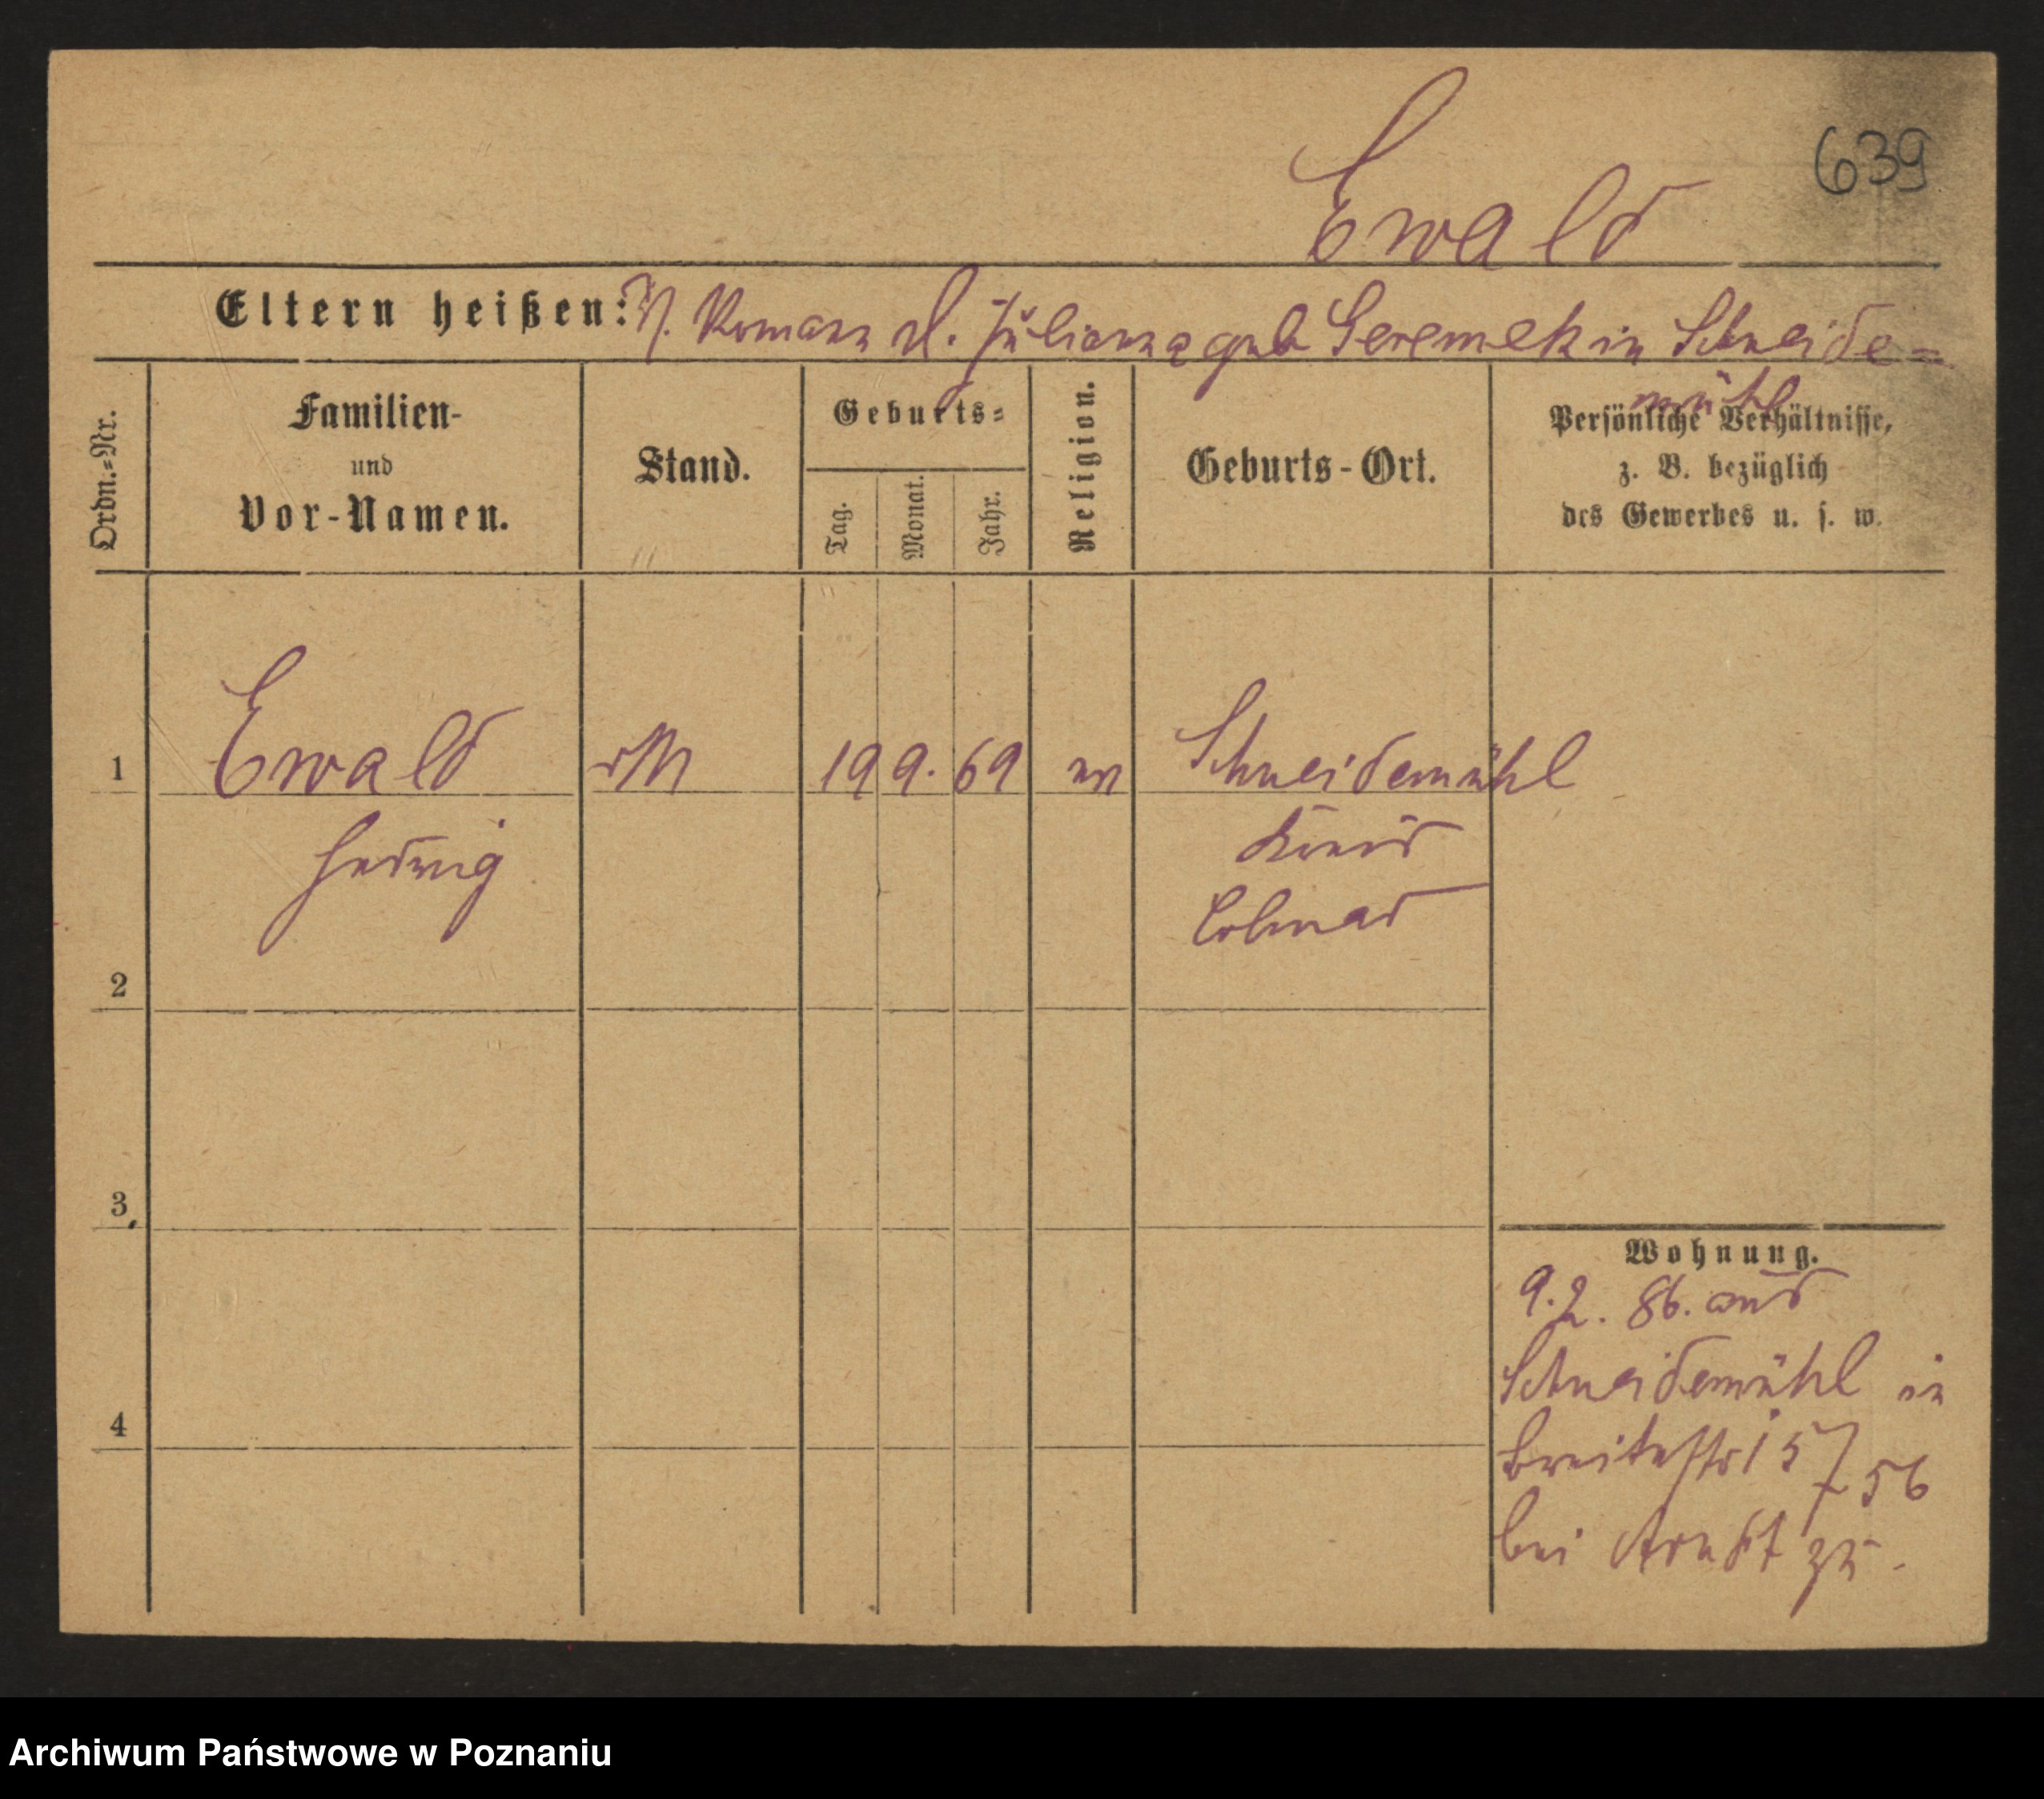 639
Ewald
Eltern heißen: V. Roman M. Juliana geb Geremek in Schneide=
mühl
Ordn.=Nr.
Familien-
und
Vor-Namen.
Stand.
Geburts=
Tag.
Monat.
Jahr.
Religion.
Geburts-Ort.
Persönliche Verhältnisse,
z. B. bezüglich
des Gewerbes u. s. w.
1 Ewald 19 9. 69 Schneidemühl
Hedwig
Kreis
Colmar
2
3
4
Wohnung.
9.2. 86. aus
Schneidemühl in
Breitestr 15 / 56
bei Arndt zu.
Archiwum Państwowe w Poznaniu